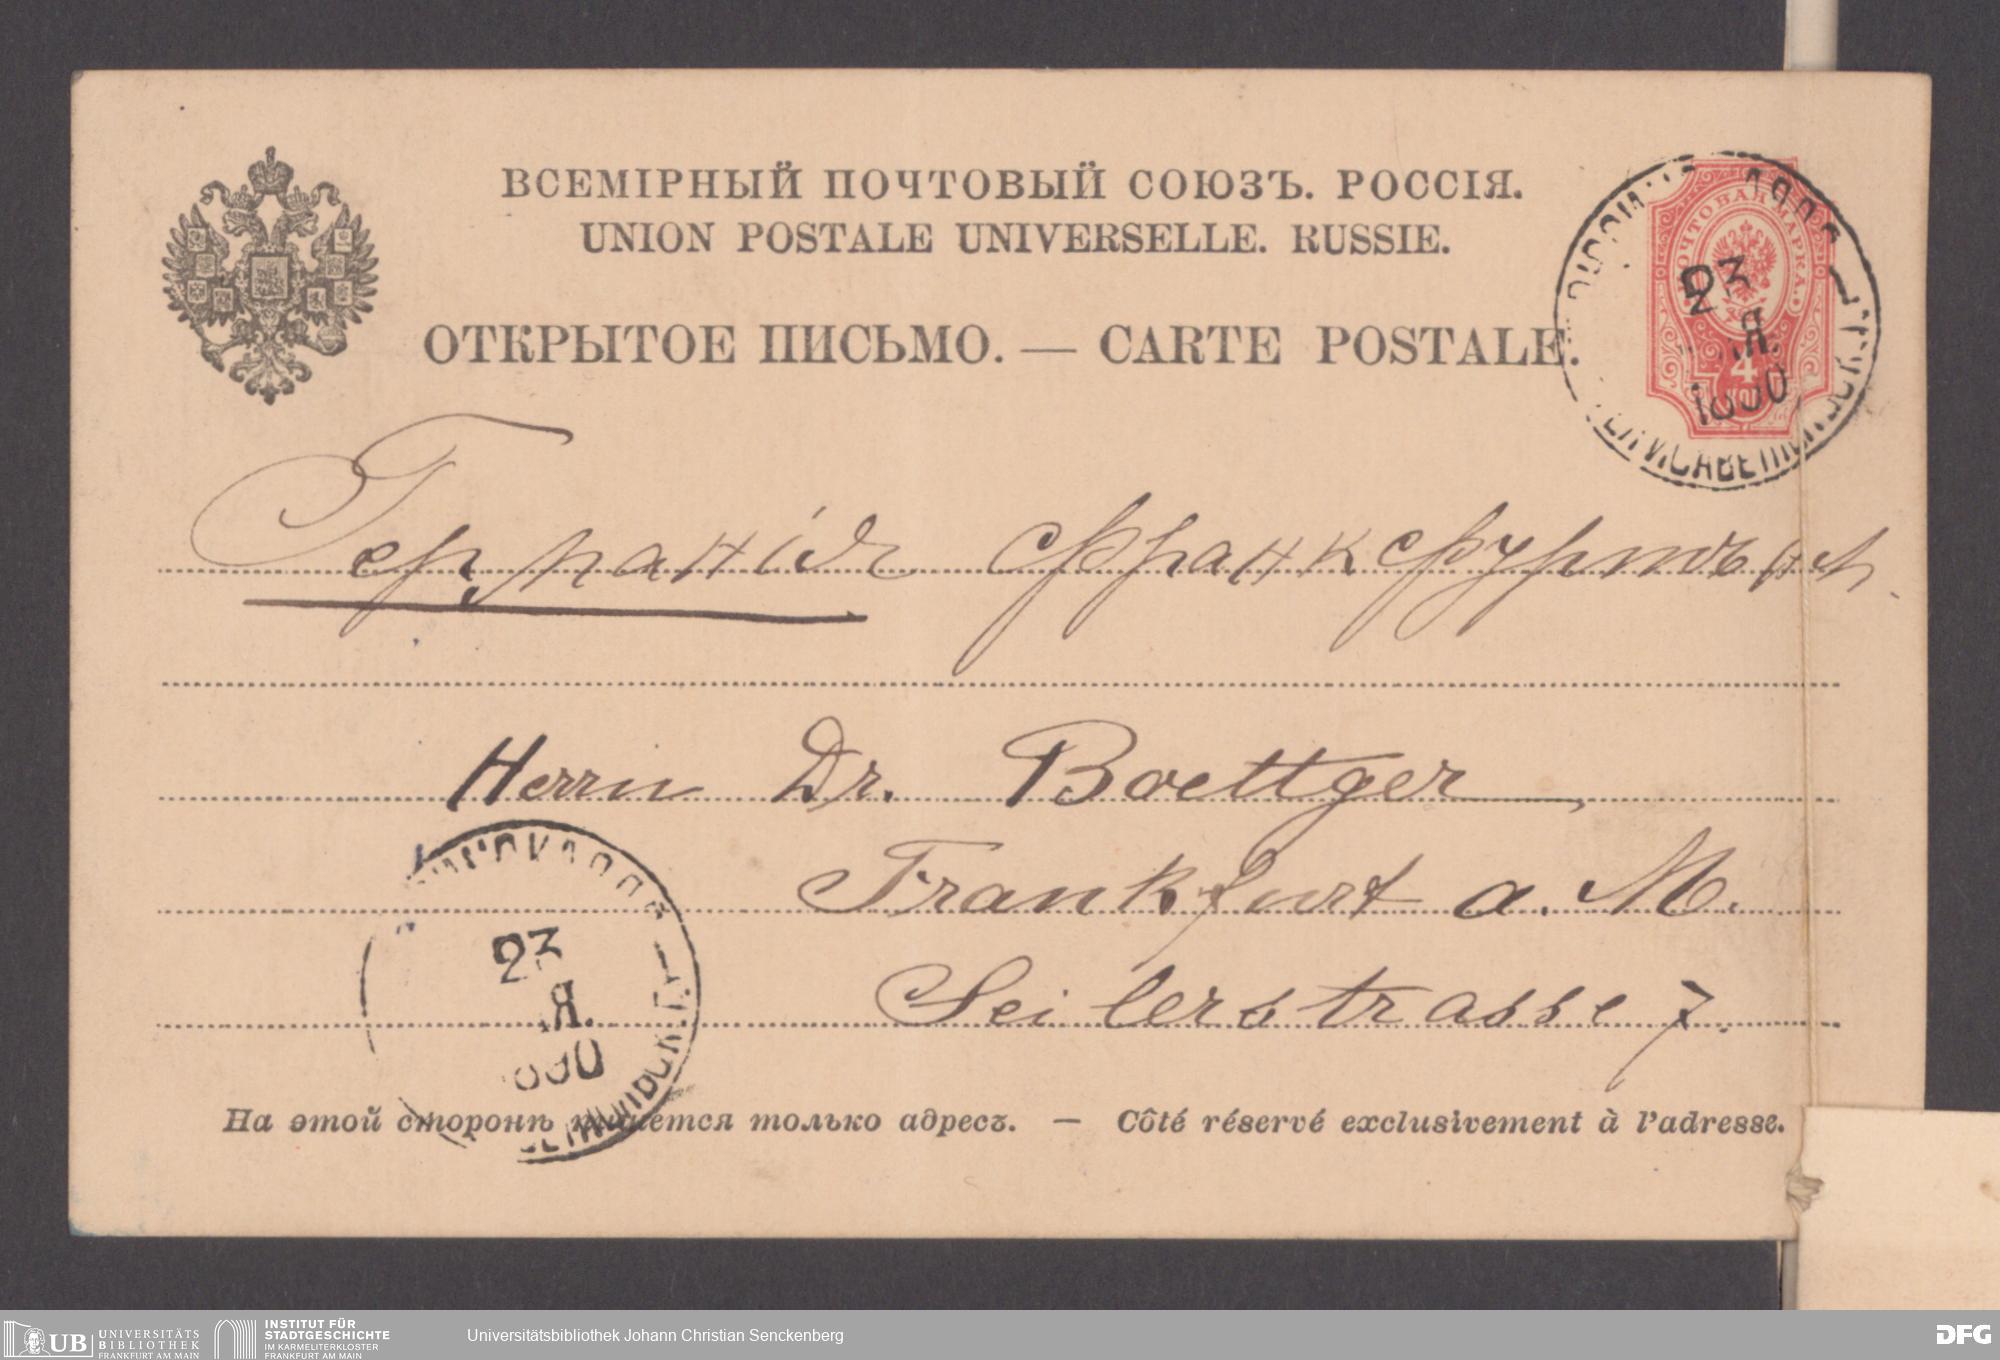 ВСЕМІРНЫЙ ПОЧТОВЫЙ СОЮЗЪ. РОССІЯ.
UNION POSTALE UNIVERSELLE. RUSSIE.
ОТКРЫТОЕ ПИСЬМО. — CARTE POSTALE.
ПОЧТОВАЯ МАРКА.
4
КОП
23
Я.
1890
Германія Франкфуртъ н М.
Herrn Dr. Boettger,
Frankfurt a. M.
Seilerstrasse 7.
23
Я.
890
На этой сторонѣ пишется только адресъ. — Côté réservé exclusivement à l'adresse.
UB UNIVERSITÄTS BIBLIOTHEK FRANKFURT AM MAIN
INSTITUT FÜR STADTGESCHICHTE IM KARMELITERKLOSTER FRANKFURT AM MAIN
Universitätsbibliothek Johann Christian Senckenberg
DFG